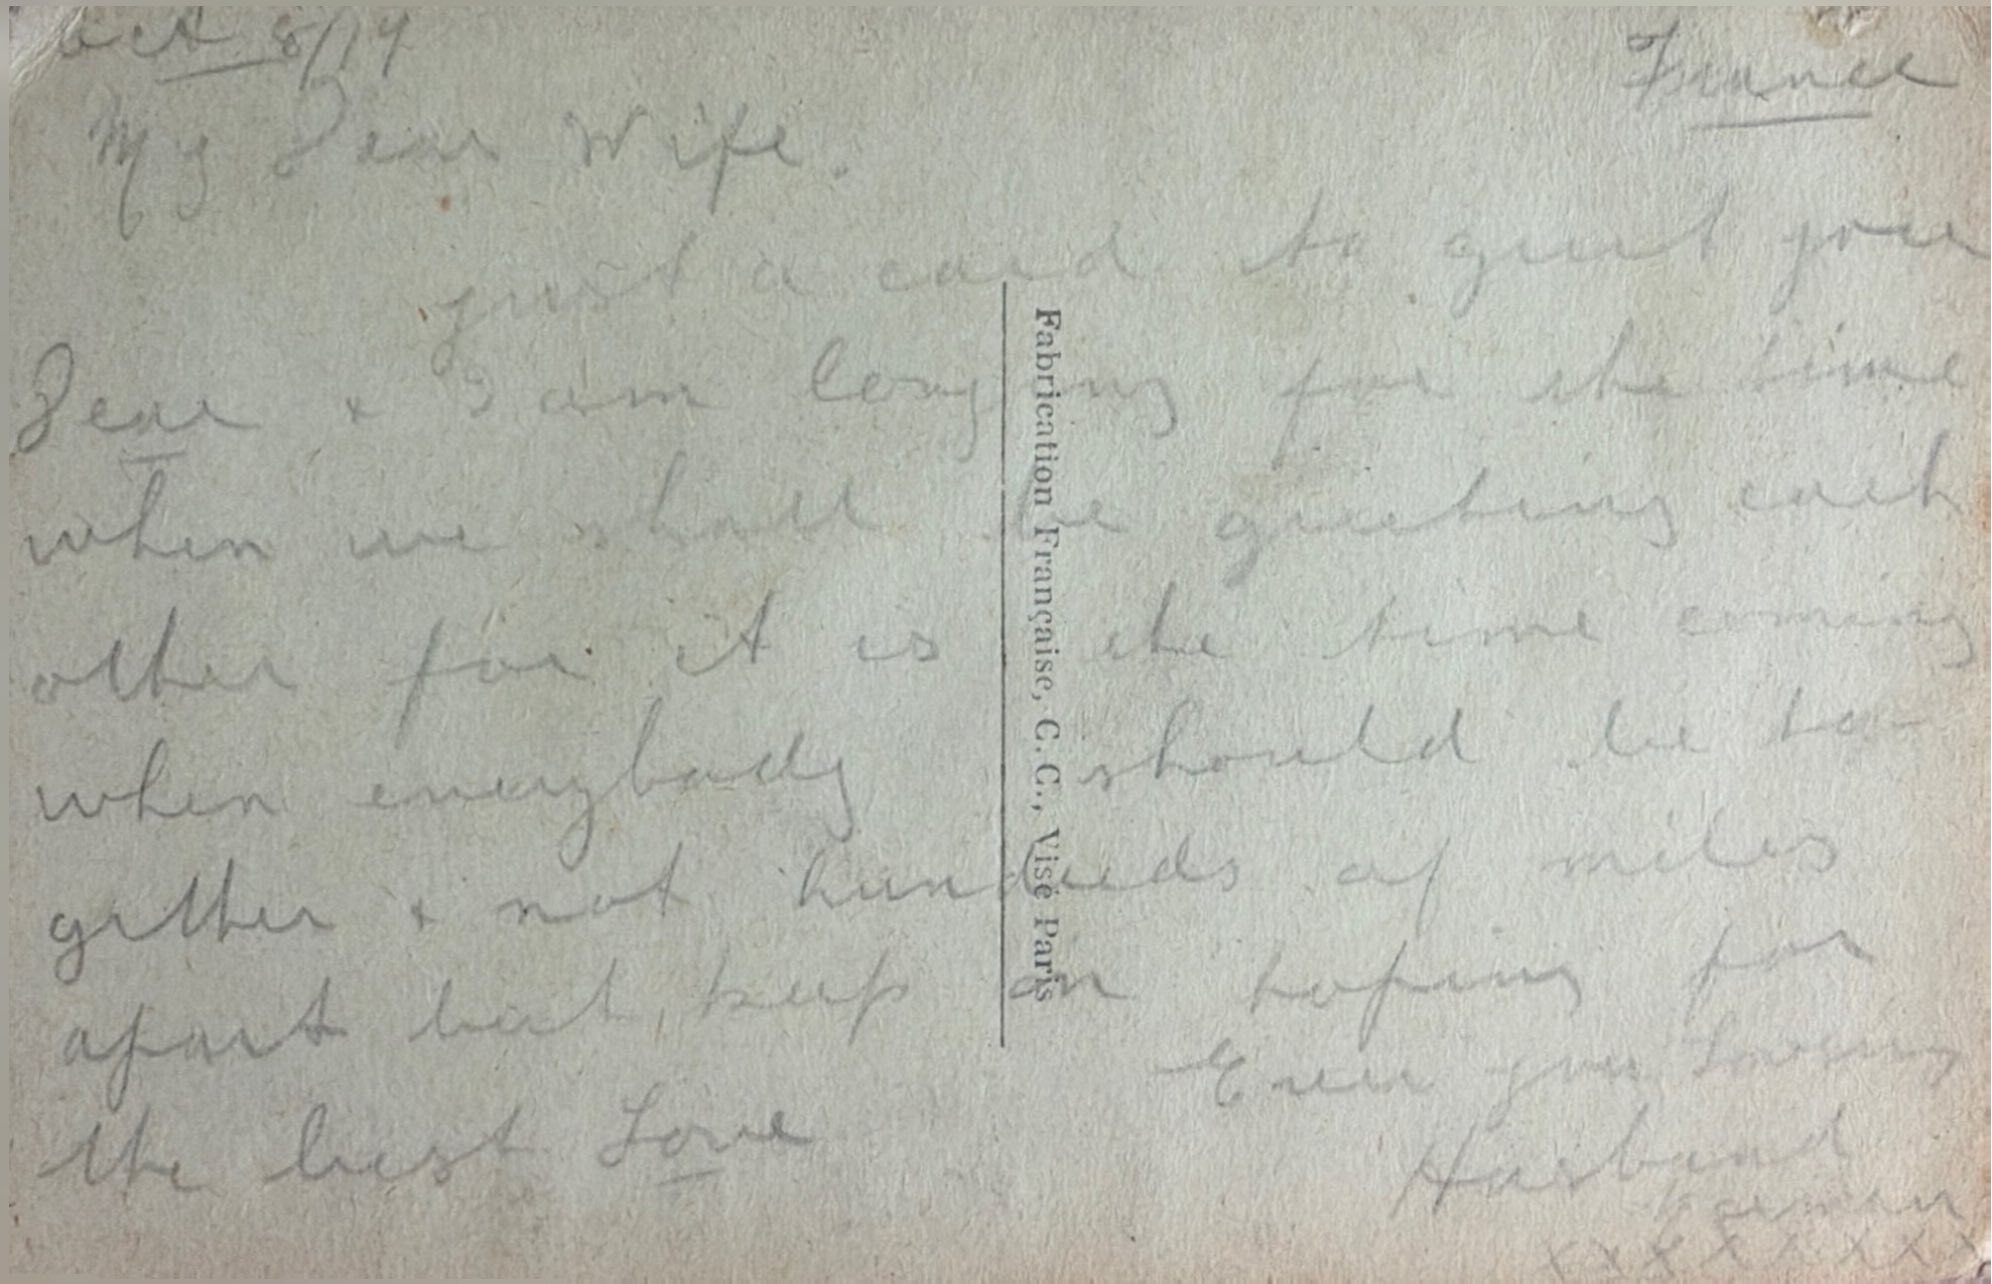 Oct 8/19
France
My Dear Wife.
just a card to greet you
Dear & I am longing for the time
when we shall be greeting each
other for it is the time coming
when everybody should be to-
gether & not hundreds of miles
apart but keep on hoping for
the best Love
Ever your Loving
Husband
xxxxxxxx
Fabrication Française, C.C., Visé Paris